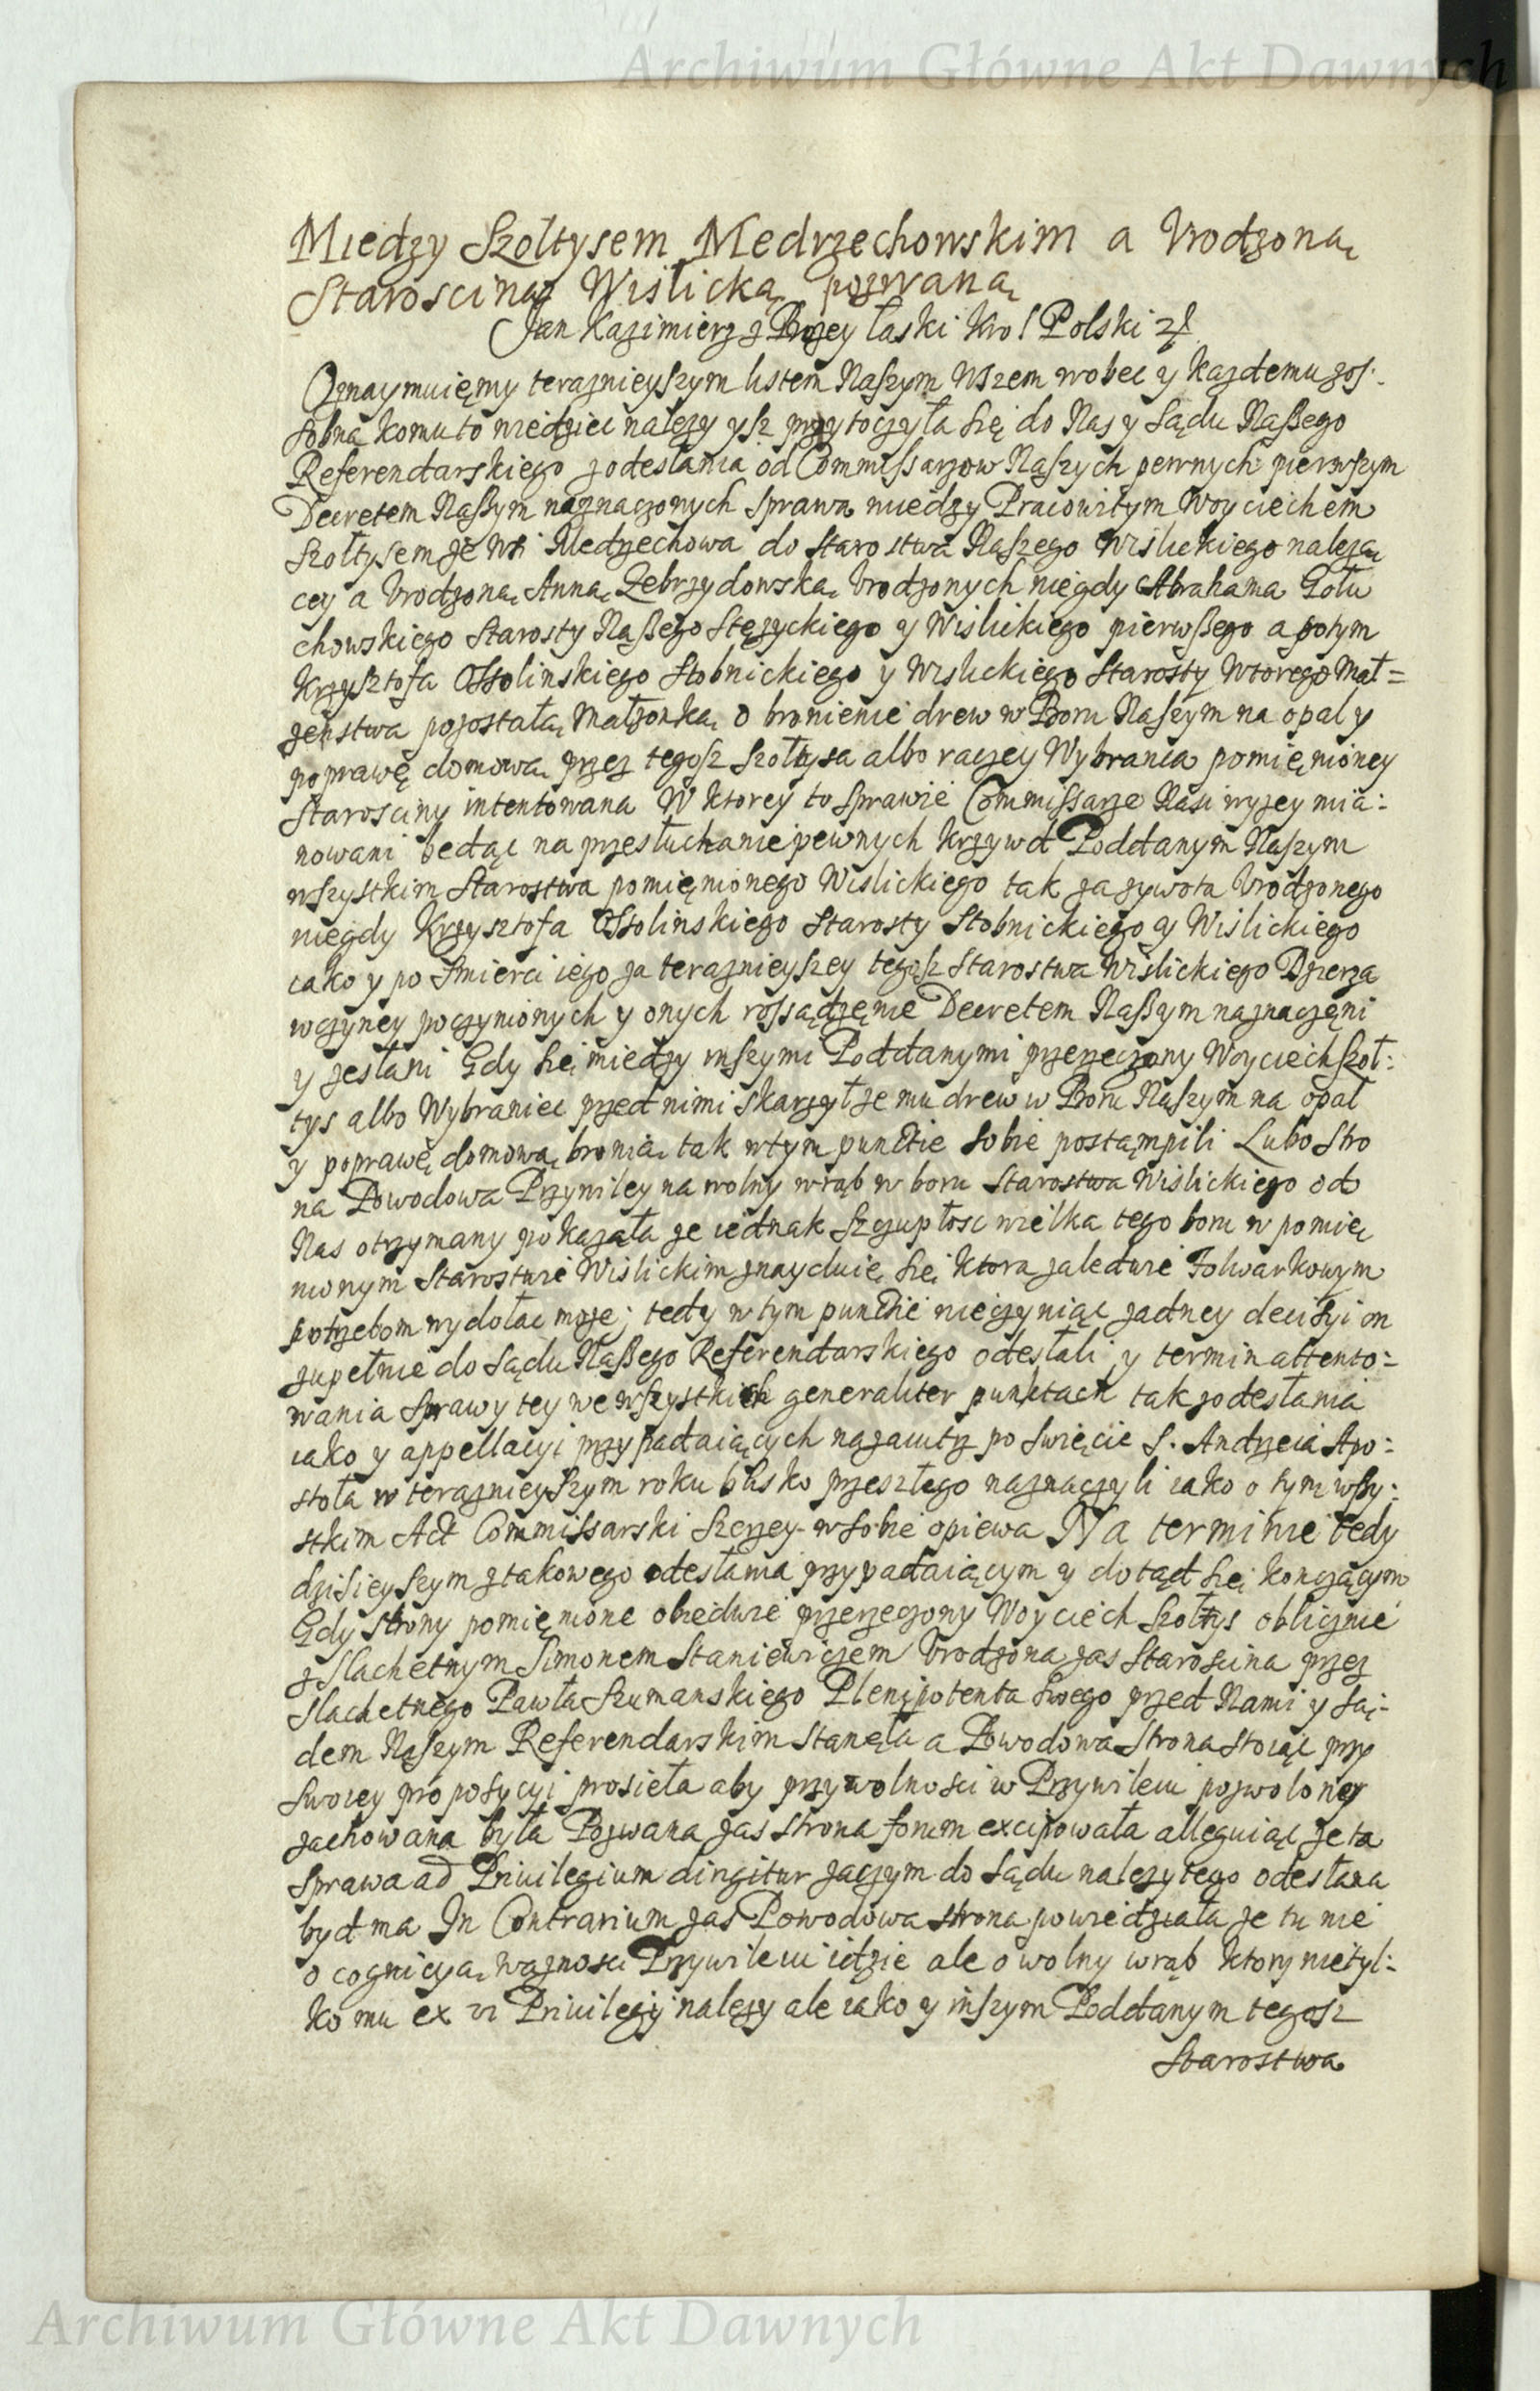 Archiwum Główne Akt Dawnych
Miedzy Szołtysem Medrzechowskim a Vrodzoną
Starosciną Wislicką pozwaną
Jan Kazimierz z Bozey łaski Krol Polski
Oznaymuięmy teraznieyszym listem Naszym Wszem wobec y kazdemu zos:
sobna komu to wiedziec nalezy ysz przytoczyła się do Nas y Sądu Naszego
Referendarskiego z odesłania od Commissarzow Naszych pewnych pierwszym
Decretem Naszym naznaczonych sprawa miedzy Pracowitym Woyciechem
Szołtysem ze wsi Medrzechowa do Starostwa Naszego Wislickiego nalezą
cey a Vrodzoną Anną Zebrzydowską Vrodzonych niegdy Abrahama Gołu
chowskiego Starosty Naszego Stęzyckiego y Wislickiego pierwszego a potym
Krzysztofa Ossolinskiego Stobnickiego y Wislickiego Starosty wtorego Mał=
zenstwa pozostałą Małzonką o bronienie drew w Boru Naszym na opał y
poprawę domową przez tegosz Szołtysa albo raczey Wybranca pomięnioney
Starosciny intentowana W ktorey to sprawie Commissarze Nasi wyzey mia:
nowani będąc na przesłuchanie pewnych krzywd Poddanym Naszym
wszystkim Starostwa pomięnionego Wislickiego tak za zywota Vrodzonego
niegdy Krzysztofa Ossolinskiego Starosty Stobnickiego y Wislickiego
iako y po smierci iego za terazniejszey tegosz Starostwa Wislickiego Dzierza
wczyney poczynionych y onych rossądzęnie Decretem Naszym naznaczęni
y zesłani Gdy się miedzy inszymi Poddanymi przerzeczony Woyciech Szoł:
tys albo Wybraniec przed nimi skarzył ze mu drew w Boru Naszym na opał
y poprawę domową bronią tak w tym punctie sobie postąmpili Lubo stro
na Powodowa Przywiley na wolny wrąb w boru Starostwa Wislickiego od
Nas otrzymany pokazała ze iednak szczupłosc wielka tego boru w pomię
nionym Starostwie Wislickim znayduię się ktora zaledwie Folwarkowym
potrzebom wydołac moze; tedy w tym punctie nieczyniąc zadney decisyi on
zupełnie do Sądu Naszego Referendarskiego odesłali y termin attento:
wania sprawy tey we wszystkich generaliter punktach tak z odesłania
iako y appellacyi przypadaiących nazaiutrz po swięcie S. Andrzeia Apo:
stoła w terazniejszym roku blisko przeszłego naznaczyli iako o tym wszy:
stkim Act Commissarski szerzey w sobie opiewa Na terminie tedy
dzisieyszym z takowego odesłania przypadaiącym y dotąd się konczącym
Gdy strony pomięnione obiedwie przerzeczony Woyciech Szołtys oblicznie
z Slachetnym Simonem Staniewiczem Vrodzona zas Staroscina przez
Slachetnego Pawła Szumanskiego Plenipotenta swego przed Nami y Są:
dem Naszym Referendarskim stanęła a Powodowa strona stoiąc przy
swoiey propozycyi prosieła aby przy wolnosci w Przywileiu pozwoloney
zachowana była Pozwana zas strona forum excipowała alleguiąc ze ta
sprawa ad Priuilegium dirigitur zaczym do sądu nalezytego odesłana
bydz ma In Contrarium zas Powodowa strona powiedziała ze tu nie
o cognicyą waznosci Przywileiu idzie ale o wolny wrąb ktory nietyl:
ko mu ex vi Priuilegij nalezy ale iako y inszym Poddanym tegosz
Starostwa
Archiwum Główne Akt Dawnych